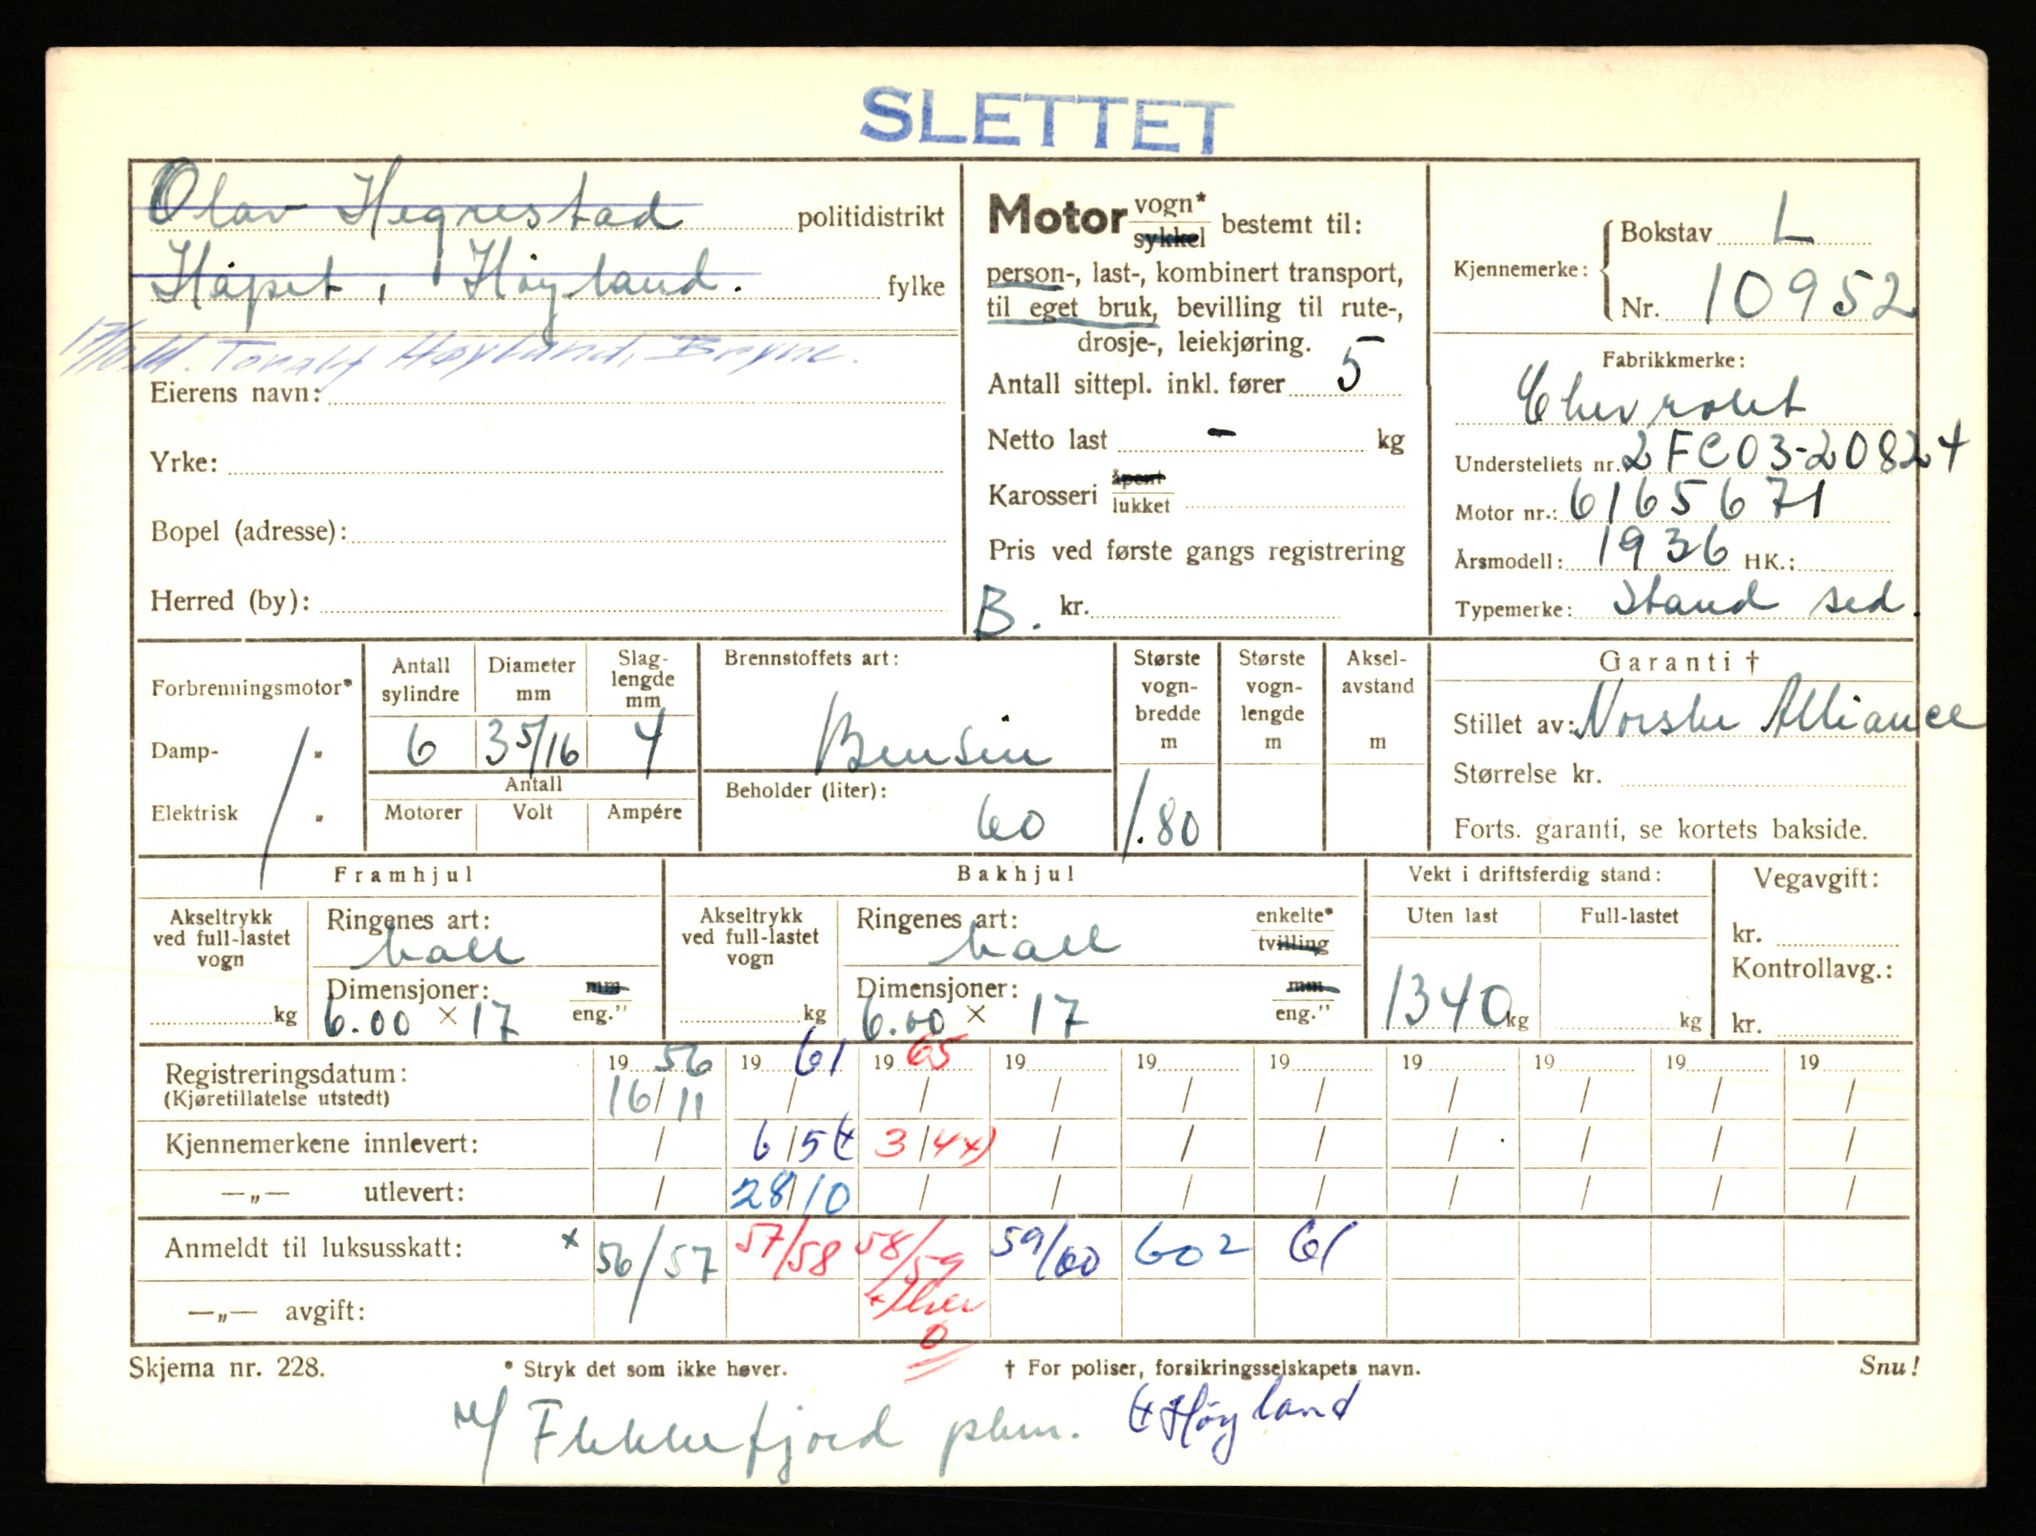 SLETTET
Olav Hegrestad politidistrikt
Håpet, Høyland. fylke
Toralf Høyland, Bryne.
Eierens navn:
Yrke:
Bopel (adresse):
Herred (by):
Motor vogn* sykkel bestemt til:
person-, last-, kombinert transport,
til eget bruk, bevilling til rute-,
drosje-, leiekjøring.
Antall sittepl. inkl. fører 5
Netto last - kg
Karosseri åpent lukket
Pris ved første gangs registrering
B. kr.
Kjennemerke: Bokstav L
Nr. 10952
Fabrikkmerke:
Chevrolet
Understellets nr. 2FC03-20824
Motor nr.: 6165671
Årsmodell: 1936 HK.:
Typemerke: Stand sed.
Forbrenningsmotor*
Damp- "
Elektrisk "
Antall sylindre
6
Diameter mm
3 5/16
Slag-lengde mm
4
Antall
Motorer Volt Ampére
Brennstoffets art:
Bensin
Beholder (liter):
60
Største vogn-bredde m
1.80
Største vogn-lengde m
Aksel-avstand m
Garanti †
Stillet av: Norske Alliance
Størrelse kr.
Forts. garanti, se kortets bakside.
Framhjul
Akseltrykk ved full-lastet vogn
kg
Ringenes art:
luft
Dimensjoner: mm eng."
6.00 × 17
Bakhjul
Akseltrykk ved full-lastet vogn
kg
Ringenes art: enkelte* tvilling
luft
Dimensjoner: mm eng."
6.00 × 17
Vekt i driftsferdig stand:
Uten last Full-lastet
1340 kg kg
Vegavgift:
kr.
Kontrollavg.:
kr.
Registreringsdatum: 19 56 19 61 19 65 19 19 19 19 19 19 19
(Kjøretillatelse utstedt) 16/11 / / / / / / / / /
Kjennemerkene innlevert: / 6/5 3/4 x) / / / / / / /
—„— utlevert: / 28/10 / / / / / / / /
Anmeldt til luksusskatt: x 56/57 57/58 58/59 59/60 60 2 61
—„— avgift:
0
Skjema nr. 228. * Stryk det som ikke høver. † For poliser, forsikringsselskapets navn. Snu!
Flekkefjord pkm. Høyland